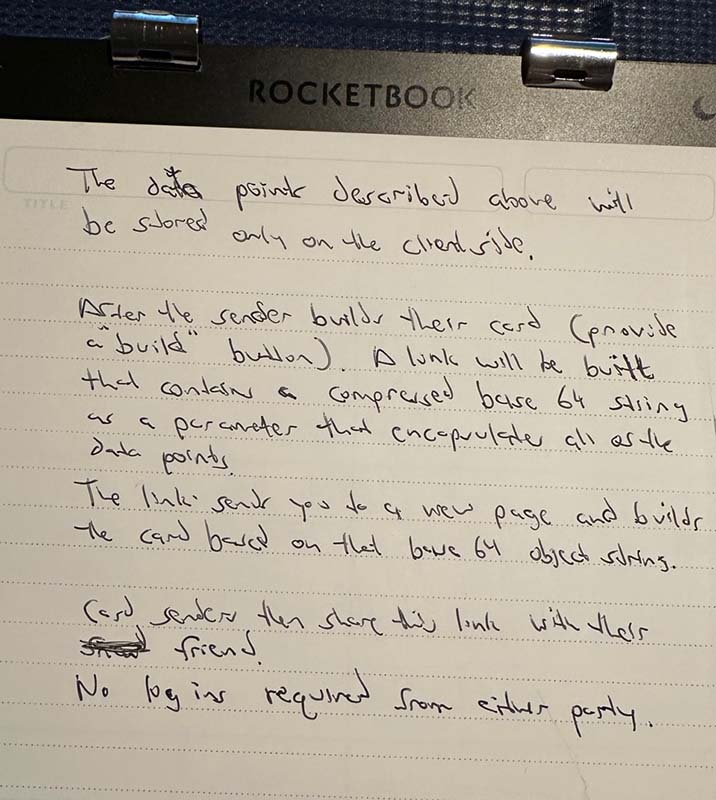 ROCKETBOOK
TITLE
The data points described above will
be stored only on the client side.
After the sender builds their card (provide
a "build" button). A link will be built
that contains a compressed base 64 string
as a parameter that encapsulates all of the
data points.
The link sends you to a new page and builds
the card based on that base 64 object string.
Card senders then share this link with their
friend.
No log ins required from either party.